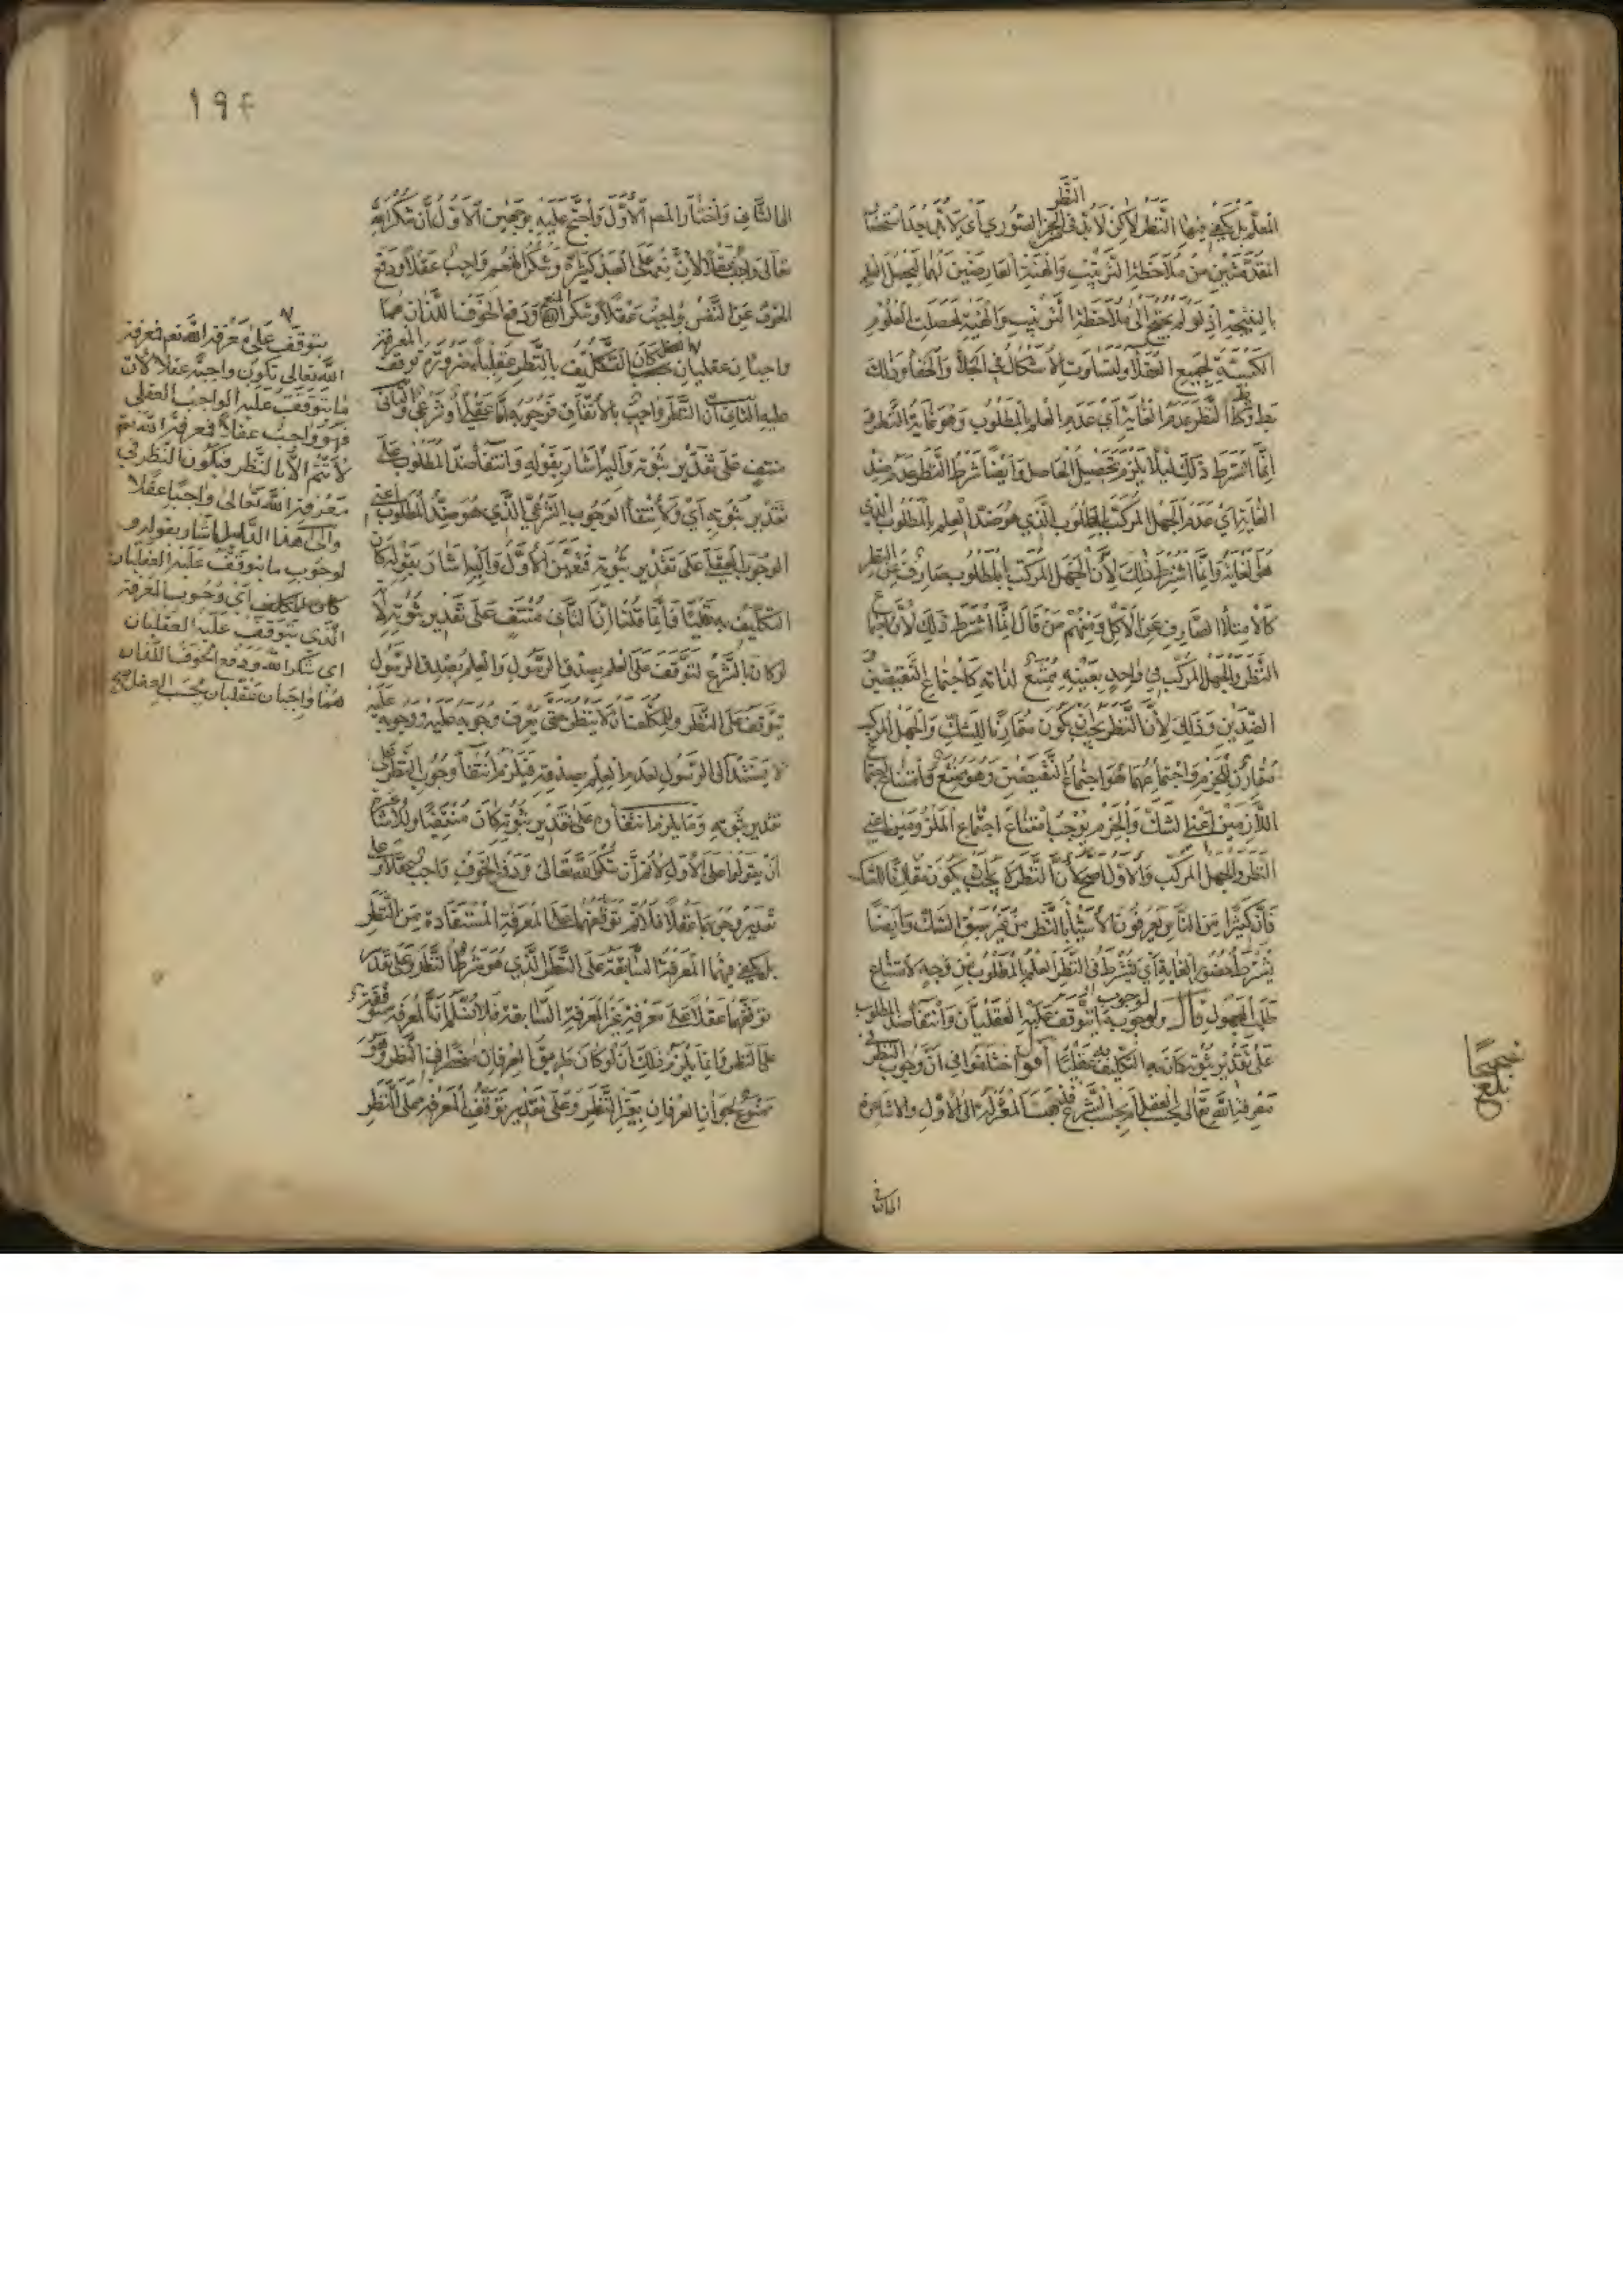 النظر
المعلم بل يكفي فيها النظر لاكن لا بد في الجزء الصوري اي لا بد بعد استحضار
المقدمتين من ملاحظة الترتيب والهيئة العارضين لهما ليحصل العلم
بالنتيجة اذ لو لم يحتج الى ملاحظة الترتيب والهيئة لحصلت العلوم
الكسبية لجميع العقلاء ولتساوت الاشكال في الجلاء والخفاء وذلك
بط وشرط النظر عدم الغاية اي عدم العلم بالمطلوب وهو غاية النظر و
انما اشترط ذلك ليلا يلزم تحصيل الحاصل وايضا شرط النظر عدم ضد
الغاية اي عدم الجهل المركب بالمطلوب الذي هو ضد العلم بالمطلوب الذي
هو الغاية وانما اشترط ذلك لان الجهل المركب بالمطلوب صارف عن النظر
كالامتلاء الصارف عن الاكل ومنهم من قال انما اشترط ذلك لان اجتماع
النظر والجهل المركب في واحد بعينه ممتنع لذاته كاجتماع النقيضين و
الضدين وذلك لان النظر يجب ان يكون مقارنا للشك والجهل المركب
مقارن للجزم واجتماعهما هو اجتماع النقيضين وهو ممتنع وامتناع اجتماع
اللازمين اعني الشك والجزم يوجب امتناع اجتماع الملزومين اعني
النظر والجهل المركب والاول اصح لان النظر لا يجب ان يكون مقارنا للشك
فان كثيرا من الناس يعرفون الاشياء بالنظر من غير سبق الشك وايضا
يشترط حضور الغاية اي يشترط في النظر العلم بالمطلوب من وجه لامتناع
طلب المجهول قال ولوجوب ما يتوقف عليه العقليان وانتفاء ضد المطلوب
على تقدير ثبوته كان التكليف به عقليا اقول اختلفوا في ان وجوب النظر في
معرفة الله تعالى بحسب العقل ام بحسب الشرع فذهبت المعتزلة الى الاول والاشاعرة
الى الثاني
صحيحا
بلغ
١٩٤
الى الثاني واختار المص الاول واحتج عليه بوجهين الاول ان شكر الله
تعالى واجب عقلا لان نعمه على العبد كثيرة وشكر المنعم واجب عقلا ودفع
الخوف عن النفس واجب عقلا وشكر المنعم ودفع الخوف اللذان هما
واجبان عقليان كان التكليف بالنظر عقليا ضرورة توقف المعرفة
عليه الثاني ان النظر واجب بالاتفاق فوجوبه اما عقلي او شرعي والثاني
منتف على تقدير ثبوته واليه اشار بقوله وانتفاء ضد المطلوب على
تقدير ثبوته اي ولانتفاء الوجوب الشرعي الذي هو ضد المطلوب اعني
الوجوب العقلي على تقدير ثبوته فتعين الاول واليه اشار بقوله كان
التكليف به عقليا فانما قلنا ان الثاني منتف على تقدير ثبوته لانه
لو كان بالشرع لتوقف على العلم بصدق الرسول والعلم بصدق الرسول
يتوقف على النظر وللمكلف ان لا ينظر حتى يعرف وجوبه عليه ووجوبه عليه
لا يستند الى الرسول لعدم العلم بصدقه فيلزم انتفاء وجوب النظر على
تقدير ثبوته وما يلزم انتفاؤه على تقدير ثبوته كان منتفيا وللاشاعرة
ان يقولوا على الاول لانم ان شكر الله تعالى ودفع الخوف واجب عقلا وعلى
تقدير وجوبهما عقلا فلانم توقفهما على المعرفة المستفادة من النظر
بل يكفي فيهما المعرفة السابقة على النظر الذي هو شرط النظر وعلى تقدير
توقفهما عقلا على معرفة غير المعرفة السابقة فلا نسلم ان المعرفة متوقفة
على النظر وانما يلزم ذلك ان لو كان طريق العرفان منحصرا في النظر وهو
ممنوع لجواز العرفان بغير النظر وعلى تقدير توقف المعرفة على النظر
يتوقف على معرفة الله تعم فمعرفة
الله تعالى تكون واجبة عقلا لان
ما يتوقف عليه الواجب العقلي
فهو واجب عقلا فمعرفة الله تعم
لا تتم الا بالنظر فيكون النظر في
معرفة الله تعالى واجبا عقلا
والى هذا الدليل اشار بقوله و
لوجوب ما يتوقف عليه العقليان
كان التكليف اي وجوب المعرفة
الذي يتوقف عليه العقليان
اي شكر الله ودفع الخوف اللذان
هما واجبان عقليان بحسب العقل صح